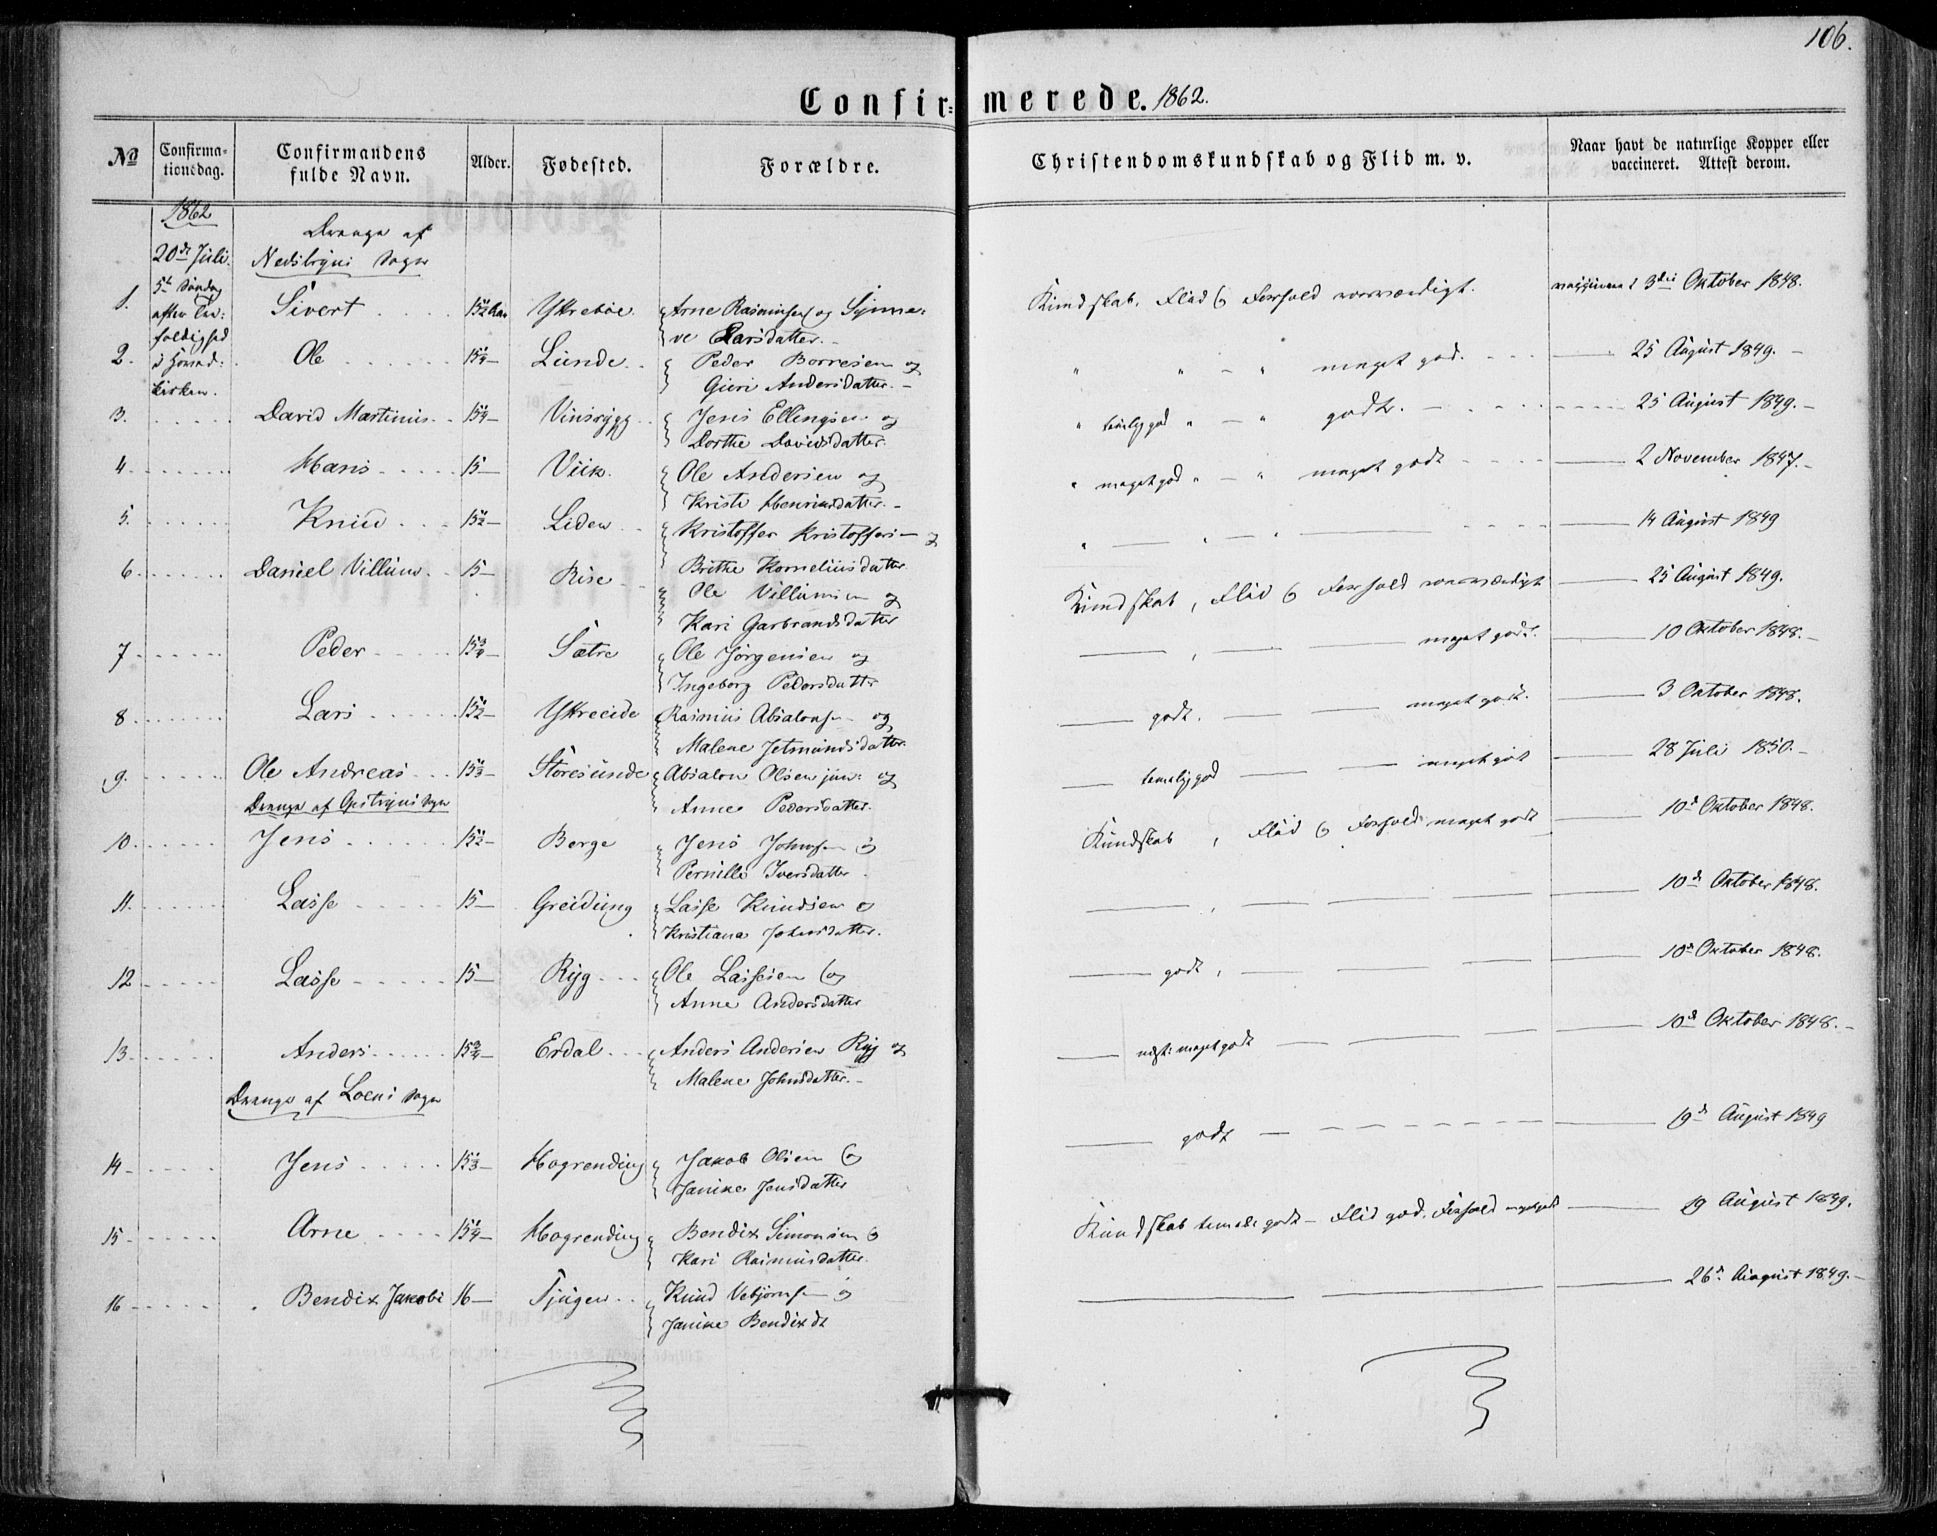 106.
Confirmerede. 1862.
No Confirmationsdag. Confirmandens fulde Navn. Alder. Fødested. Forældre. Christendomskundskab og Flid m. v. Naar havt de naturlige Kopper eller vaccineret. Attest derom.
1862
20de Juli.
5te Søndag
efter Tre:
foldighed
i Hoved:
kirken.
Drenge af
Nedstryns Sogn
1. Sivert 15 1/2 Aar Yttrebøe Arne Rasmussen og Synne:
ve Larsdatter. Kundskab, Flid & Forhold roesværdigt. vaccineret 3die Oktober 1848.
2. Ole 15 1/4 Lunde Peder Borresen og
Gieri Andersdatter. " " — " meget god. 25 August 1849.
3. David Martinus 15 1/4 Vinsrygg Jens Ellingsen og
Dorthe Davidsdatter. " temlig god " — " godt. 25 August 1849.
4. Hans 15 Viik. Ole Andersen og
Kristi Henriksdatter. " meget god " — " meget godt 2 November 1847.
5. Knud 15 1/2 Liden Kristoffer Kristoffers— og
Brithe Korneliusdatter 14 August 1849
6. Daniel Villum 15 Rise Ole Villumsen og
Kari Garbrandsdatter Kundskab, Flid & Forhold roesværdigt 25 August 1849.
7 Peder 15 3/4 Sætre Ole Jørgensen og
Ingeborg Pedersdatter meget godt. 10 Oktober 1848.
8 Lars 15 1/2 Yttreeide Rasmus Absalons— og
Malene Jetmundsdatter. godt. meget godt. 3 Oktober 1848.
9. Ole Andreas 15 1/3 Storesunde Absalon Olsen jun: og
Anne Pedersdatter. temelig god meget godt 28 Juli 1850.
Drenge af Opstryns Sogn
10. Jens 15 1/2 Berge Jens Johns— &
Pernille Iversdatter. Kundskab, Flid & Forhold meget godt 10de Oktober 1848.
11. Lasse 15 Greidung Lasse Knudsen &
Kristiana Johnsdatter. 10de Oktober 1848.
12 Lasse 15 Ryg Ole Lassesen &
Anne Andersdatter godt, 10de Oktober 1848.
13. Anders 15 3/4 Erdal Anders Andersen Ryg og
Malene Johnsdatter. næst: meget godt 10de Oktober 1848.
Drenge af Loens Sogn
14 Jens 15 1/3 Hogrending Jakob Olsen &
Janike Jensdatter godt 19de August 1849
15 Arne 15 1/4 Hogrending Bendix Simonsen &
Kari Rasmusdatter. Kundskab temelig godt — Flid god. Forhold meget godt 19 August 1849.
16 Bendix Jakob 16 Tjugen Knud Vebjørns— &
Janike Bendixdt 26de August 1849.